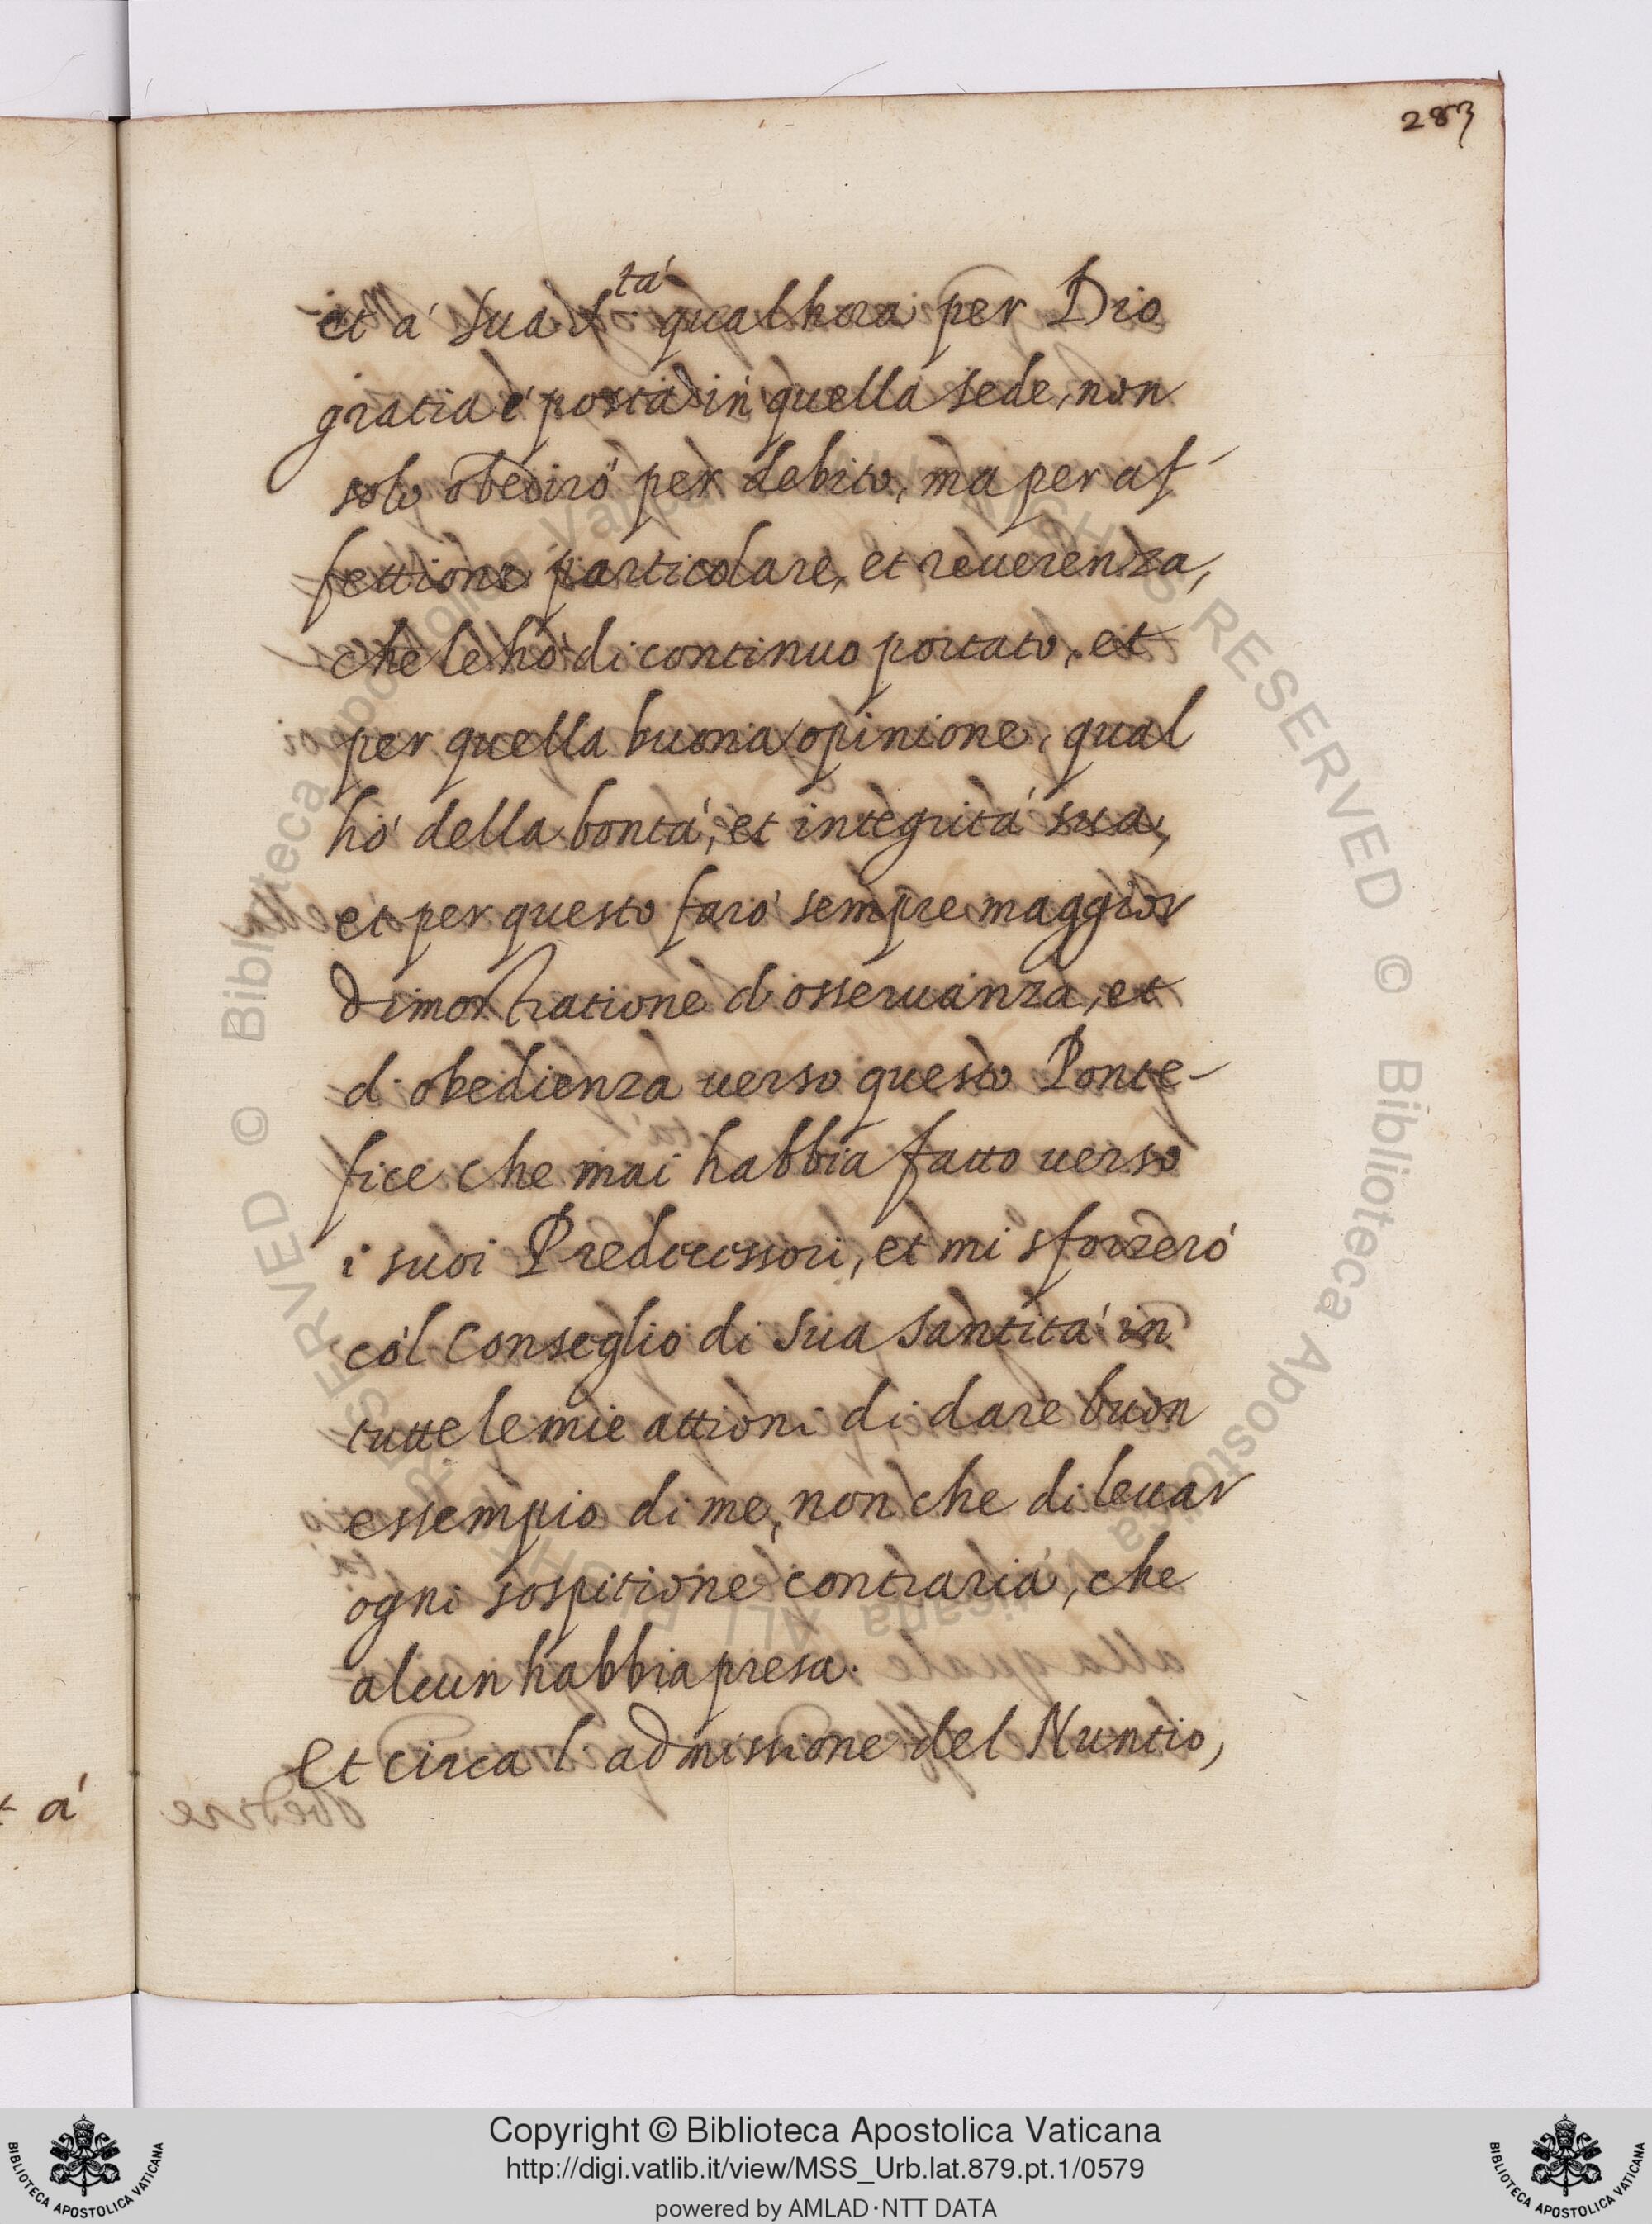 283
et á Sua S.tá qual hora per Dio
gratia é posta in quella sede, non
solo obediró per debito, ma per af-
fettione particolare, et reuerenza,
che le hó di continuo portato, et
per quella buona opinione, qual
hó della bontá, et integritá sua,
et per questo faró sempre maggior
dimostratione d'osseruanza, et
d'obedienza uerso questo Ponte-
fice che mai habbia fatto uerso
i suoi Predecessori, et mi sforzeró
cól Conseglio di Sua Santitá in
tutte le mie attioni di dare buon
essempio di me, non che di leuar
ogni sospitione contraria, che
alcun habbia presa.
Et circa l'admissione del Nuntio,
á
Copyright © Biblioteca Apostolica Vaticana
http://digi.vatlib.it/view/MSS_Urb.lat.879.pt.1/0579
powered by AMLAD·NTT DATA
BIBLIOTECA APOSTOLICA VATICANA
BIBLIOTECA APOSTOLICA VATICANA